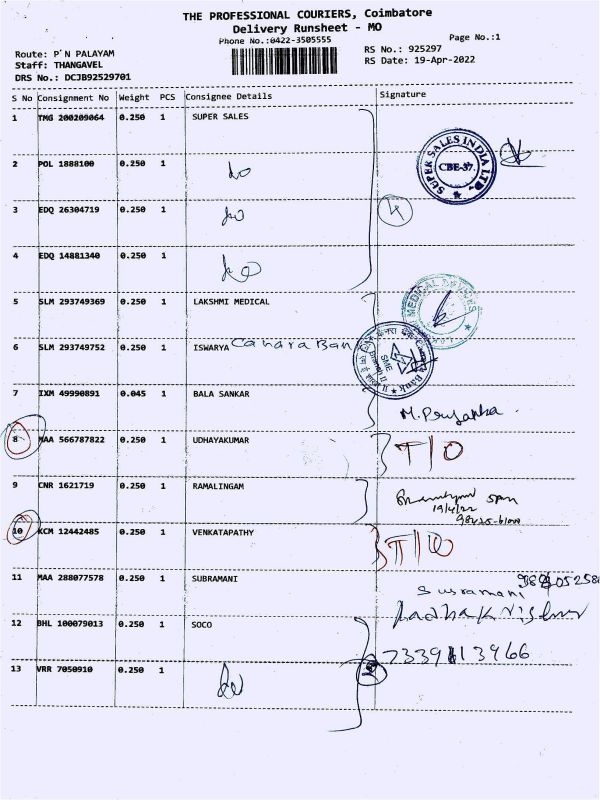 THE PROFESSIONAL COURIERS, Coimbatore
Delivery Runsheet - MO
Phone No.:0422-3505555
Page No.:1
Route: P'N PALAYAM
RS No.: 925297
Staff: THANGAVEL
RS Date: 19-Apr-2022
DRS No.: DCJB92529701
S No Consignment No Weight PCS Consignee Details Signature
1 TMG 200209064 0.250 1 SUPER SALES
SUPER SALES INDIA LTD. CBE-37.
2 POL 1888100 0.250 1
3 EDQ 26304719 0.250 1
4
4 EDQ 14881340 0.250 1
5 SLM 293749369 0.250 1 LAKSHMI MEDICAL
MEDICAL
6 SLM 293749752 0.250 1 ISWARYA Canara Ban
SME
Bank
7 IXM 49990891 0.045 1 BALA SANKAR
M. Priyanka
8 MAA 566787822 0.250 1 UDHAYAKUMAR T/O
9 CNR 1621719 0.250 1 RAMALINGAM
19/4/22
10 KCM 12442485 0.250 1 VENKATAPATHY
11 MAA 288077578 0.250 1 SUBRAMANI
Susramani
12 BHL 100079013 0.250 1 SOCO
Radhakrishnan
13 VRR 7050910 0.250 1